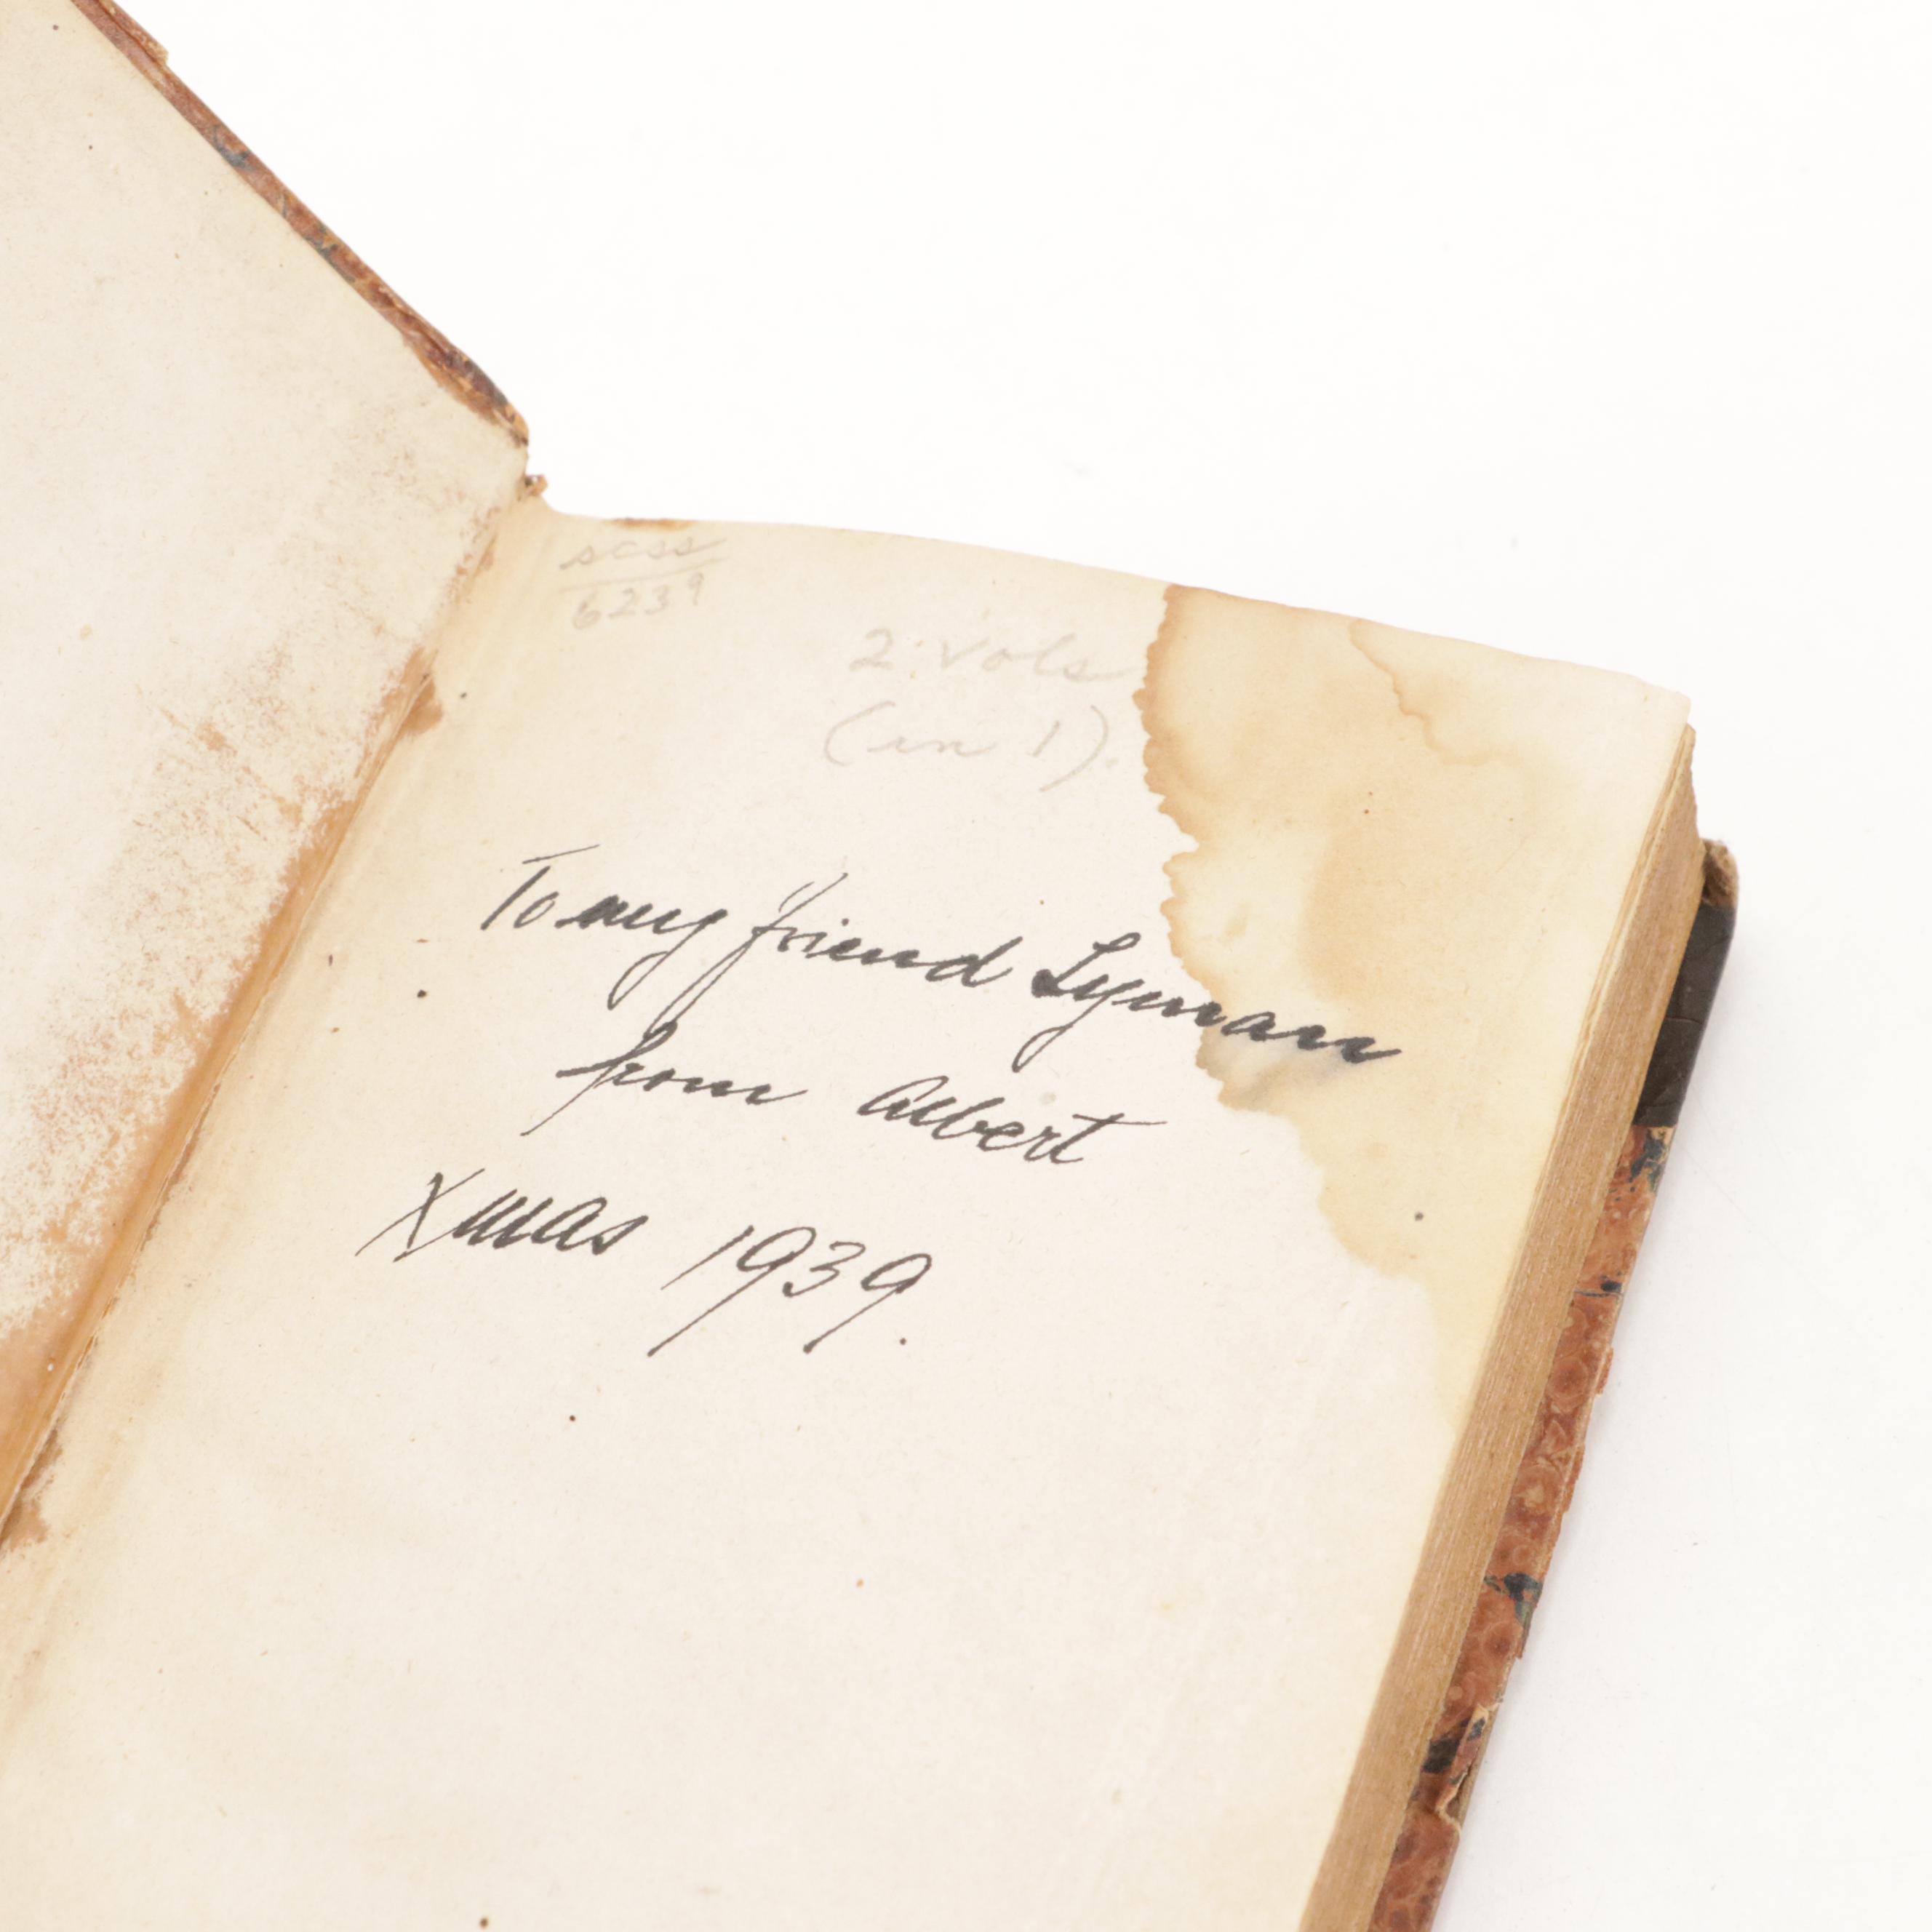 scss
6239
2 vols
(in 1).
To my friend Lyman
from Albert
Xmas 1939.